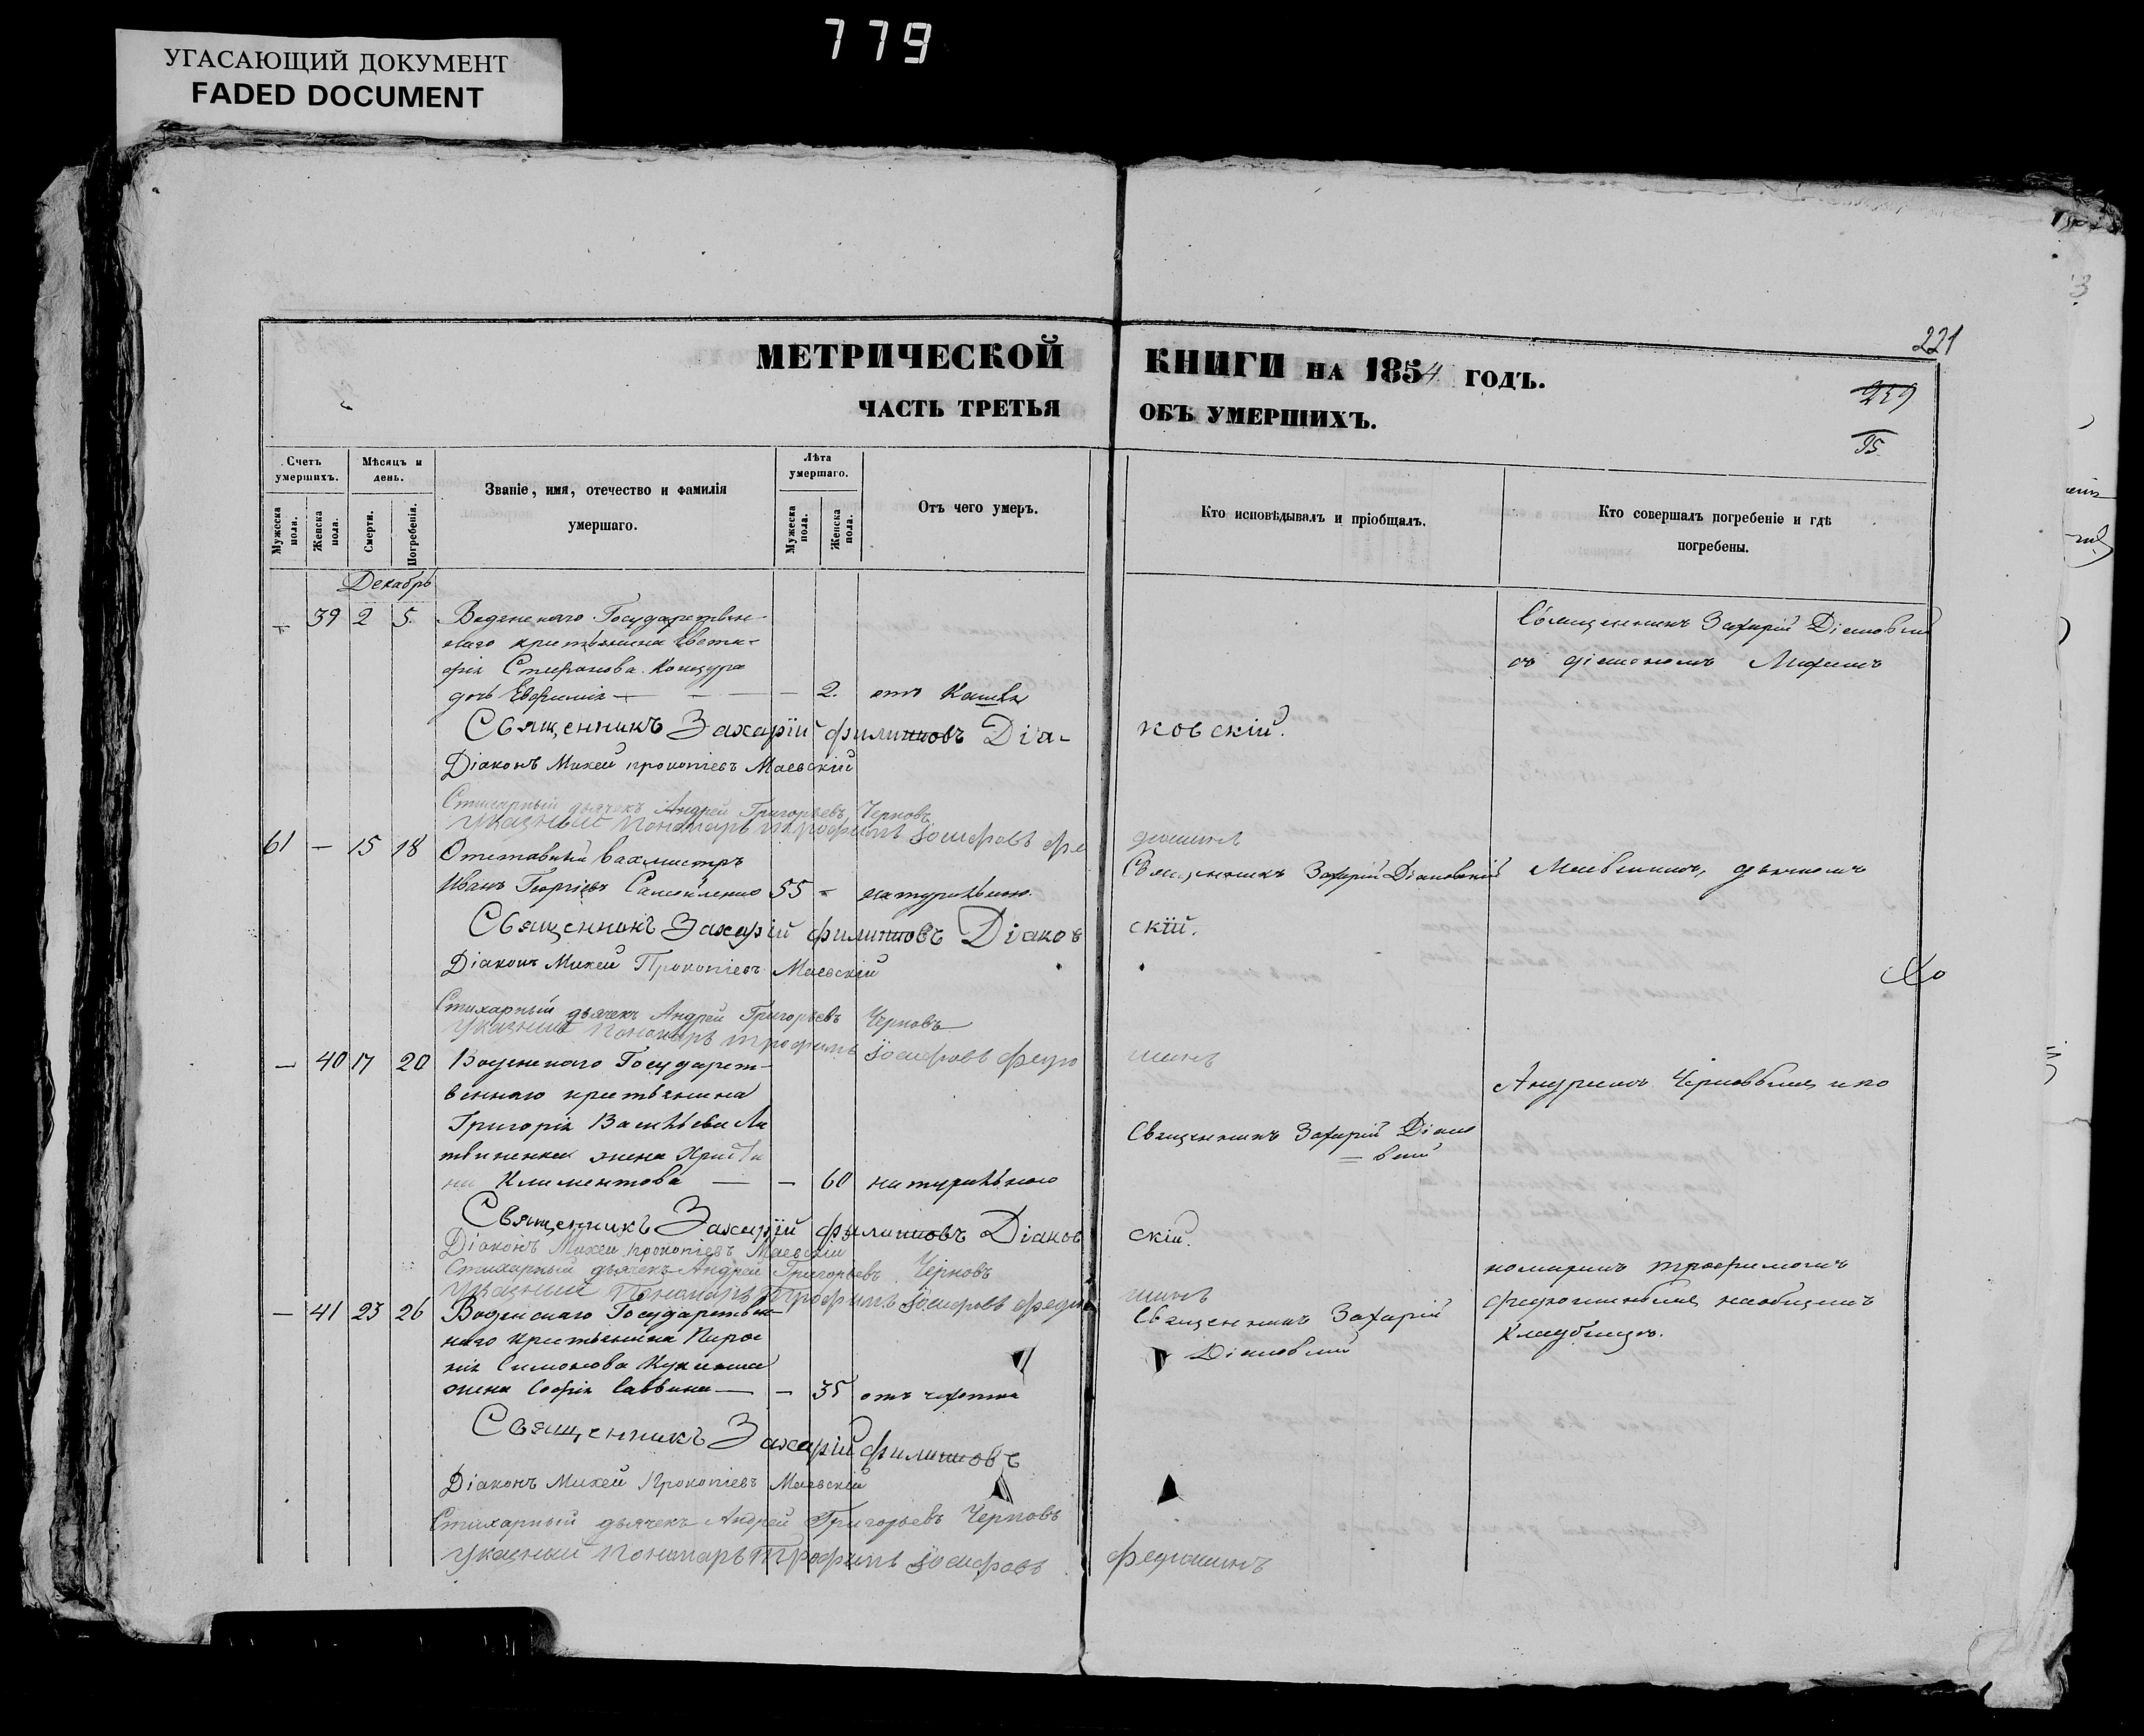 779
УГАСАЮЩИЙ ДОКУМЕНТ
FADED DOCUMENT
221
МЕТРИЧЕСКОЙ КНИГИ НА 1854 ГОДЪ.
ЧАСТЬ ТРЕТЬЯ ОБЪ УМЕРШИХЪ.
Счетъ умершихъ.
Мужеска пола.
Женска пола.
Мѣсяцъ и день.
Смерти.
Погребенія.
Званіе, имя, отечество и фамилія
умершаго.
Лѣта умершаго.
Мужеска пола.
Женска пола.
Отъ чего умеръ.
Кто исповѣдывалъ и пріобщалъ.
Кто совершалъ погребеніе и гдѣ
погребены.
Декабрь
39 2 5 Государствен-
наго крестьянина Евста-
фія Стефанова
дочь Евфимія — — — 2. отъ Кашля
Священникъ Захарій Діаковскій
съ діакономъ Михеемъ
Священникъ Захарій филиповъ Діа-
ковскій.
Діаконъ Михей Прокопіевъ Маевскій
Стихарный дьячекъ Андрей Григорьевъ Черновъ
Указный Пономарь Трофимъ Іосифовъ Фе
дюшинъ
61 — 15 18 Отставный Вахмистръ
Иванъ Георгіевъ Самойленко 55 - натурально.
Священникъ Захарій Діаковскій
Маевскимъ, дьячкомъ
Священникъ Захарій филиповъ Діаков
скій.
Діаконъ Михей Прокопіевъ Маевскій
Стихарный дьячекъ Андрей Григорьевъ Черновъ
Указный Пономарь Трофимъ Іосифовъ Федю
шинъ
— 40 17 20 Государст-
веннаго крестьянина
Григорія Васильева Ли
твиненка жена Христи
на Климентова — — 60 натурально
Священникъ Захарій Діако
= вскій
Андреемъ Черновымъ и по
Священникъ Захарій филиповъ Діаков
скій.
Діаконъ Михей Прокопіевъ Маевскій
Стихарный дьячекъ Андрей Григорьевъ Черновъ
Указный Пономарь Трофимъ Іосифовъ Федю
шинъ
— 41 23 26 Государствен-
наго крестьянина
Симонова
жена Софія Саввина — — 35 отъ чахотки
Священникъ Захарій
Діаковскій
номаремъ Трофимомъ
Федюшинымъ на общемъ
кладбищѣ.
Священникъ Захарій филиповъ
Діаконъ Михей Прокопіевъ Маевскій
Стихарный дьячекъ Андрей Григорьевъ Черновъ
Указный Пономарь Трофимъ Іосифовъ Федюшинъ